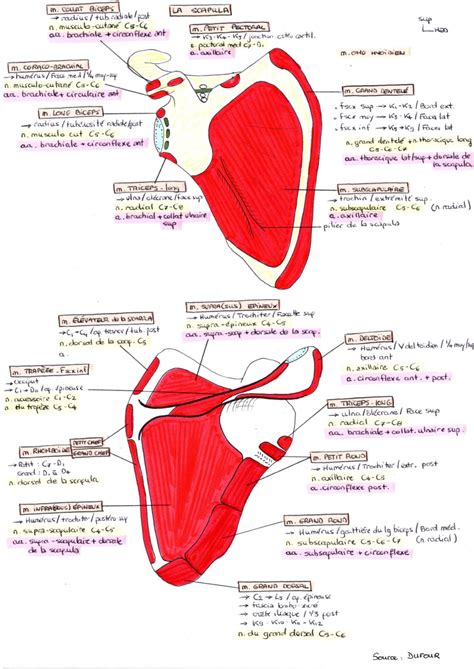 LA SCAPULA
sup
m. COURT BICEPS
→ radius / tub radiale / post
n. musculo-cutané C5-C6
aa. brachiale + circonflexe ant
m. PETIT PECTORAL
→ K3-K4-K5 / jonction costo cartil.
n. pectoral med C7-D1
a. axillaire
m. OMO HYOIDIEN
m. CORACO-BRACHIAL
→ humérus / Face med / 1/4 moy-sup
n. musculo-cutané C5-C6
aa. brachiale + circulaire ant
m. LONG BICEPS
→ radius / tubérosité radiale/post
n. musculo cut C5-C6
aa. brachiale + circonflexe ant
m. GRAND DENTELÉ
• fscx sup → K1-K2 / Bord ext.
• fscx moy → K3-K4 / Face lat
• fscx inf → K5→K9 / Face lat
n. grand dentelé + thoracique long C5-C6-C7
aa. thoracique lat/sup + dorsale de la scapula
m. TRICEPS-long
→ ulna / olécrane / face sup
n. radial C7-C8
a. brachial + collat ulnaire sup
m. SUBSCAPULAIRE
→ trochin / extrémité sup
n. subscapulaire C5-C6 (n. radial)
a. axillaire
pilier de la scapula
m. ÉLÉVATEUR de la SCAPULA
→ C1→C4 / ap. tsver / tub. post
n. dorsal de la scap. C5
a.
m. SUPRA(SUS) ÉPINEUX
→ Humérus / Trochiter / Facette sup
n. supra-épineux C4-C5
aa. supra-scap + dorsale de la scap.
m. DELTOIDE
→ Humérus / V deltoïdien / 1/2 moy
bord ant
n. axillaire C5-C6
a. circonflexe ant. + post.
m. TRAPÈZE-
→ Occiput
C1→D10 / ap. épineuse
n. accessoire C1-C2
n. du trapèze C3-C4
m. TRICEPS-LONG
→ ulna / olécrane / Face sup
n. radial C7-C8
a. brachiale + collat. ulnaire sup
m. RHOMBOIDE
PETIT CHEF
GRAND CHEF
→ Petit : C7-D1
Grand : D1 à D4
n. dorsal de la scapula
m. PETIT ROND
→ Humérus / Trochiter / extr. post
n. axillaire C5-C6
a. circonflexe post.
m. INFRA(SOUS) ÉPINEUX
→ Humérus / trochiter /
n. supra-scapulaire C4-C5
aa. supra-scapulaire + dorsale
de la scapula
m. GRAND ROND
→ Humérus / gouttière du lg biceps / Bord méd.
n. subscapulaire C5-C6 (n radial)
aa. subscapulaire + circonflexe
m. GRAND DORSAL
/ ap. épineuse
→ fascia lombo-
→ crête iliaque / 1/3 post
→ K9 - K10 - K11 - K12
n. du grand dorsal C6-C8
Source : DUFOUR